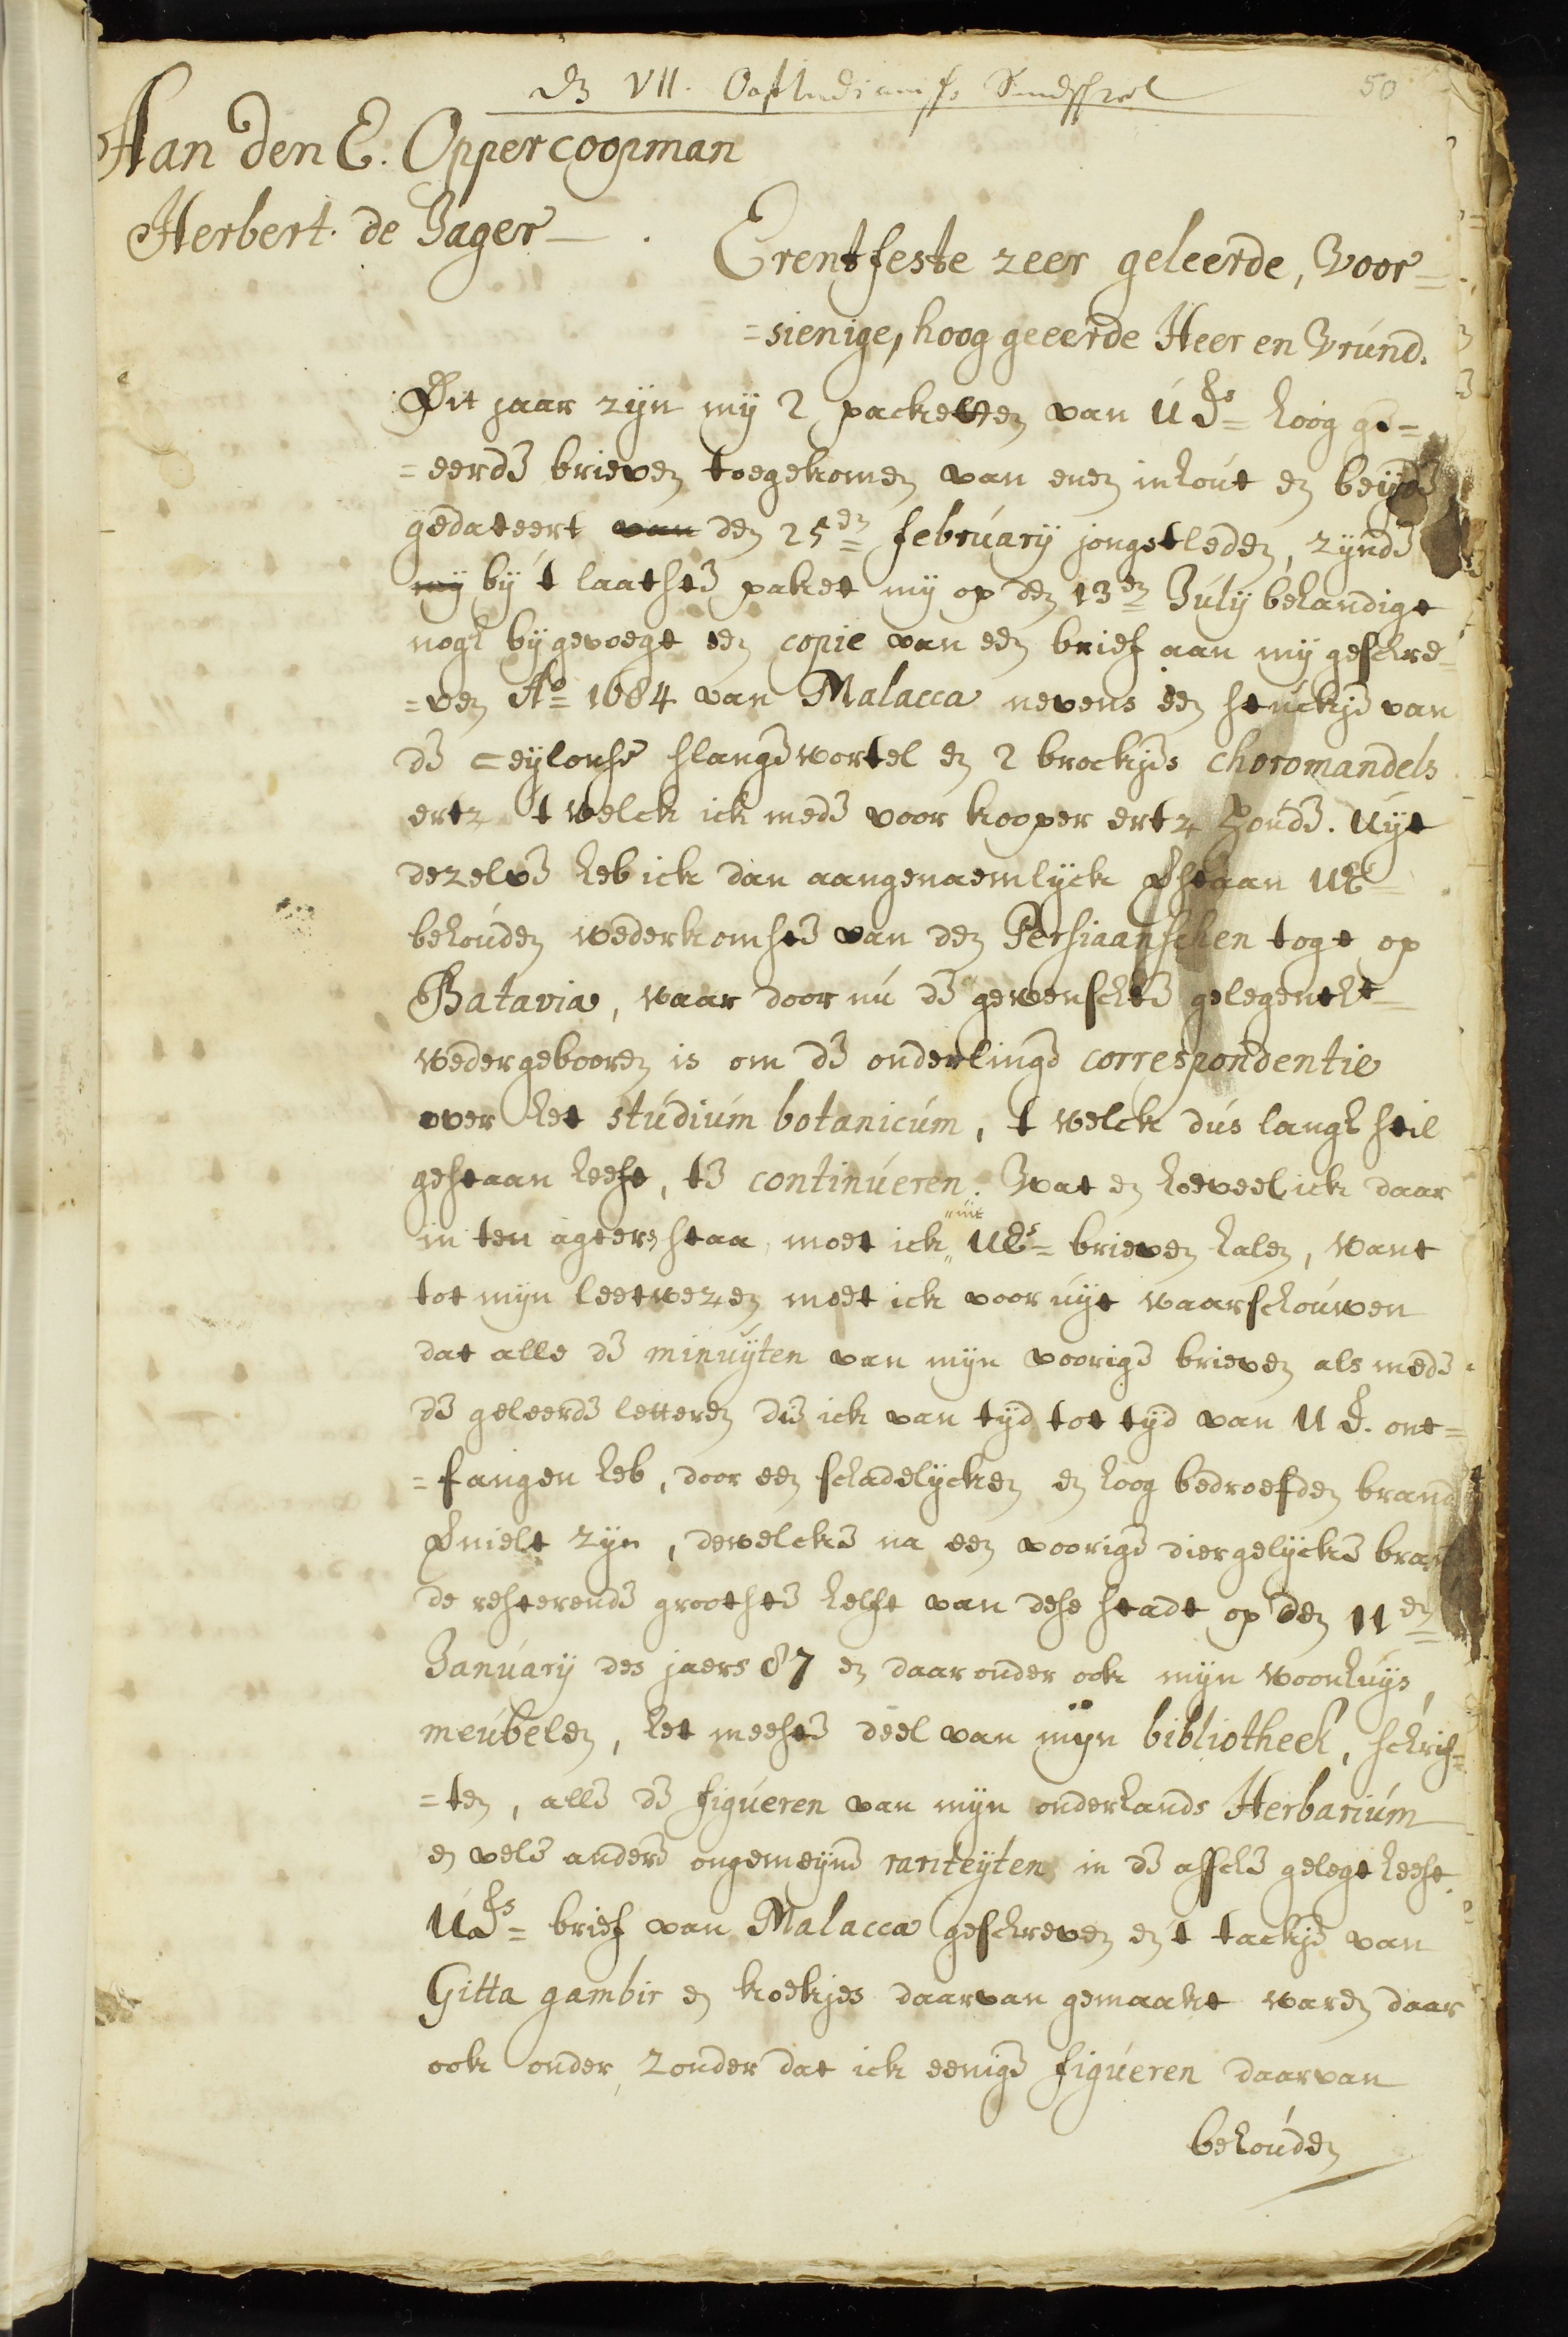 VII. Ostindianisch Sendschrei
50
Aan den E. Oppercoopman
Herbert de Jager
Erentfeste zeer geleerde, Voor=
=sienige, hoog geeerde Heer en Vrund.
Dit jaar zyn my 2 packetten van UEs= hoog ge=
=eerde brieven toegekomen van enen inhout en beyde
gedateert van den 25en february jongstleden, zynde
my by 't laatste paket my op den 13en July behandigt
nogh bygevoegt een copie van een brief aan my geschre=
=ven Ao= 1684 van Malacca nevens een stuckje van
de Ceylonse slangewortel en 2 brockjes choromandels
ertz 't welck ick mede voor kooper ertz houde. Uyt
dezelve heb ick dan aangenaemlyck verstaan UE
behouden wederkomste van den Persiaanschen togt op
Batavia, waar door nu de gewenschte gelegentht
wedergebooren is om de onderlinge correspondentie
over het studium botanicum, 't welck dus langh stil
gestaan heeft, te continueren. Wat en hoeveel ick daar
in ten agteren staa, moet ick uit UEs= brieven halen, want
tot myn leetwezen moet ick voor uyt waarschouwen
dat alle de minuyten van myn voorige brieven als mede
de geleerde letteren die ick van tyd tot tyd van UE. ont=
=fangen heb, door een schadelycken en hoog bedroefden brand
vernielt zyn, dewelcke na een voorige diergelycke brand
de resterende grootste helft van dese stadt op den 11en
January des jaers 87 en daar onder ook myn woonhuys,
meubelen, het meeste deel van myn bibliotheek, schrif=
=ten, alle de figueren van myn onderhands Herbarium
en vele andere ongemeyne rariteyten in de assche gelegt heeft.
UEs= brief van Malacca geschreven en 't tackje van
Gitta gambir en koekjes daarvan gemaakt waren daar
ook onder, zonder dat ick eenige figueren daarvan
behouden